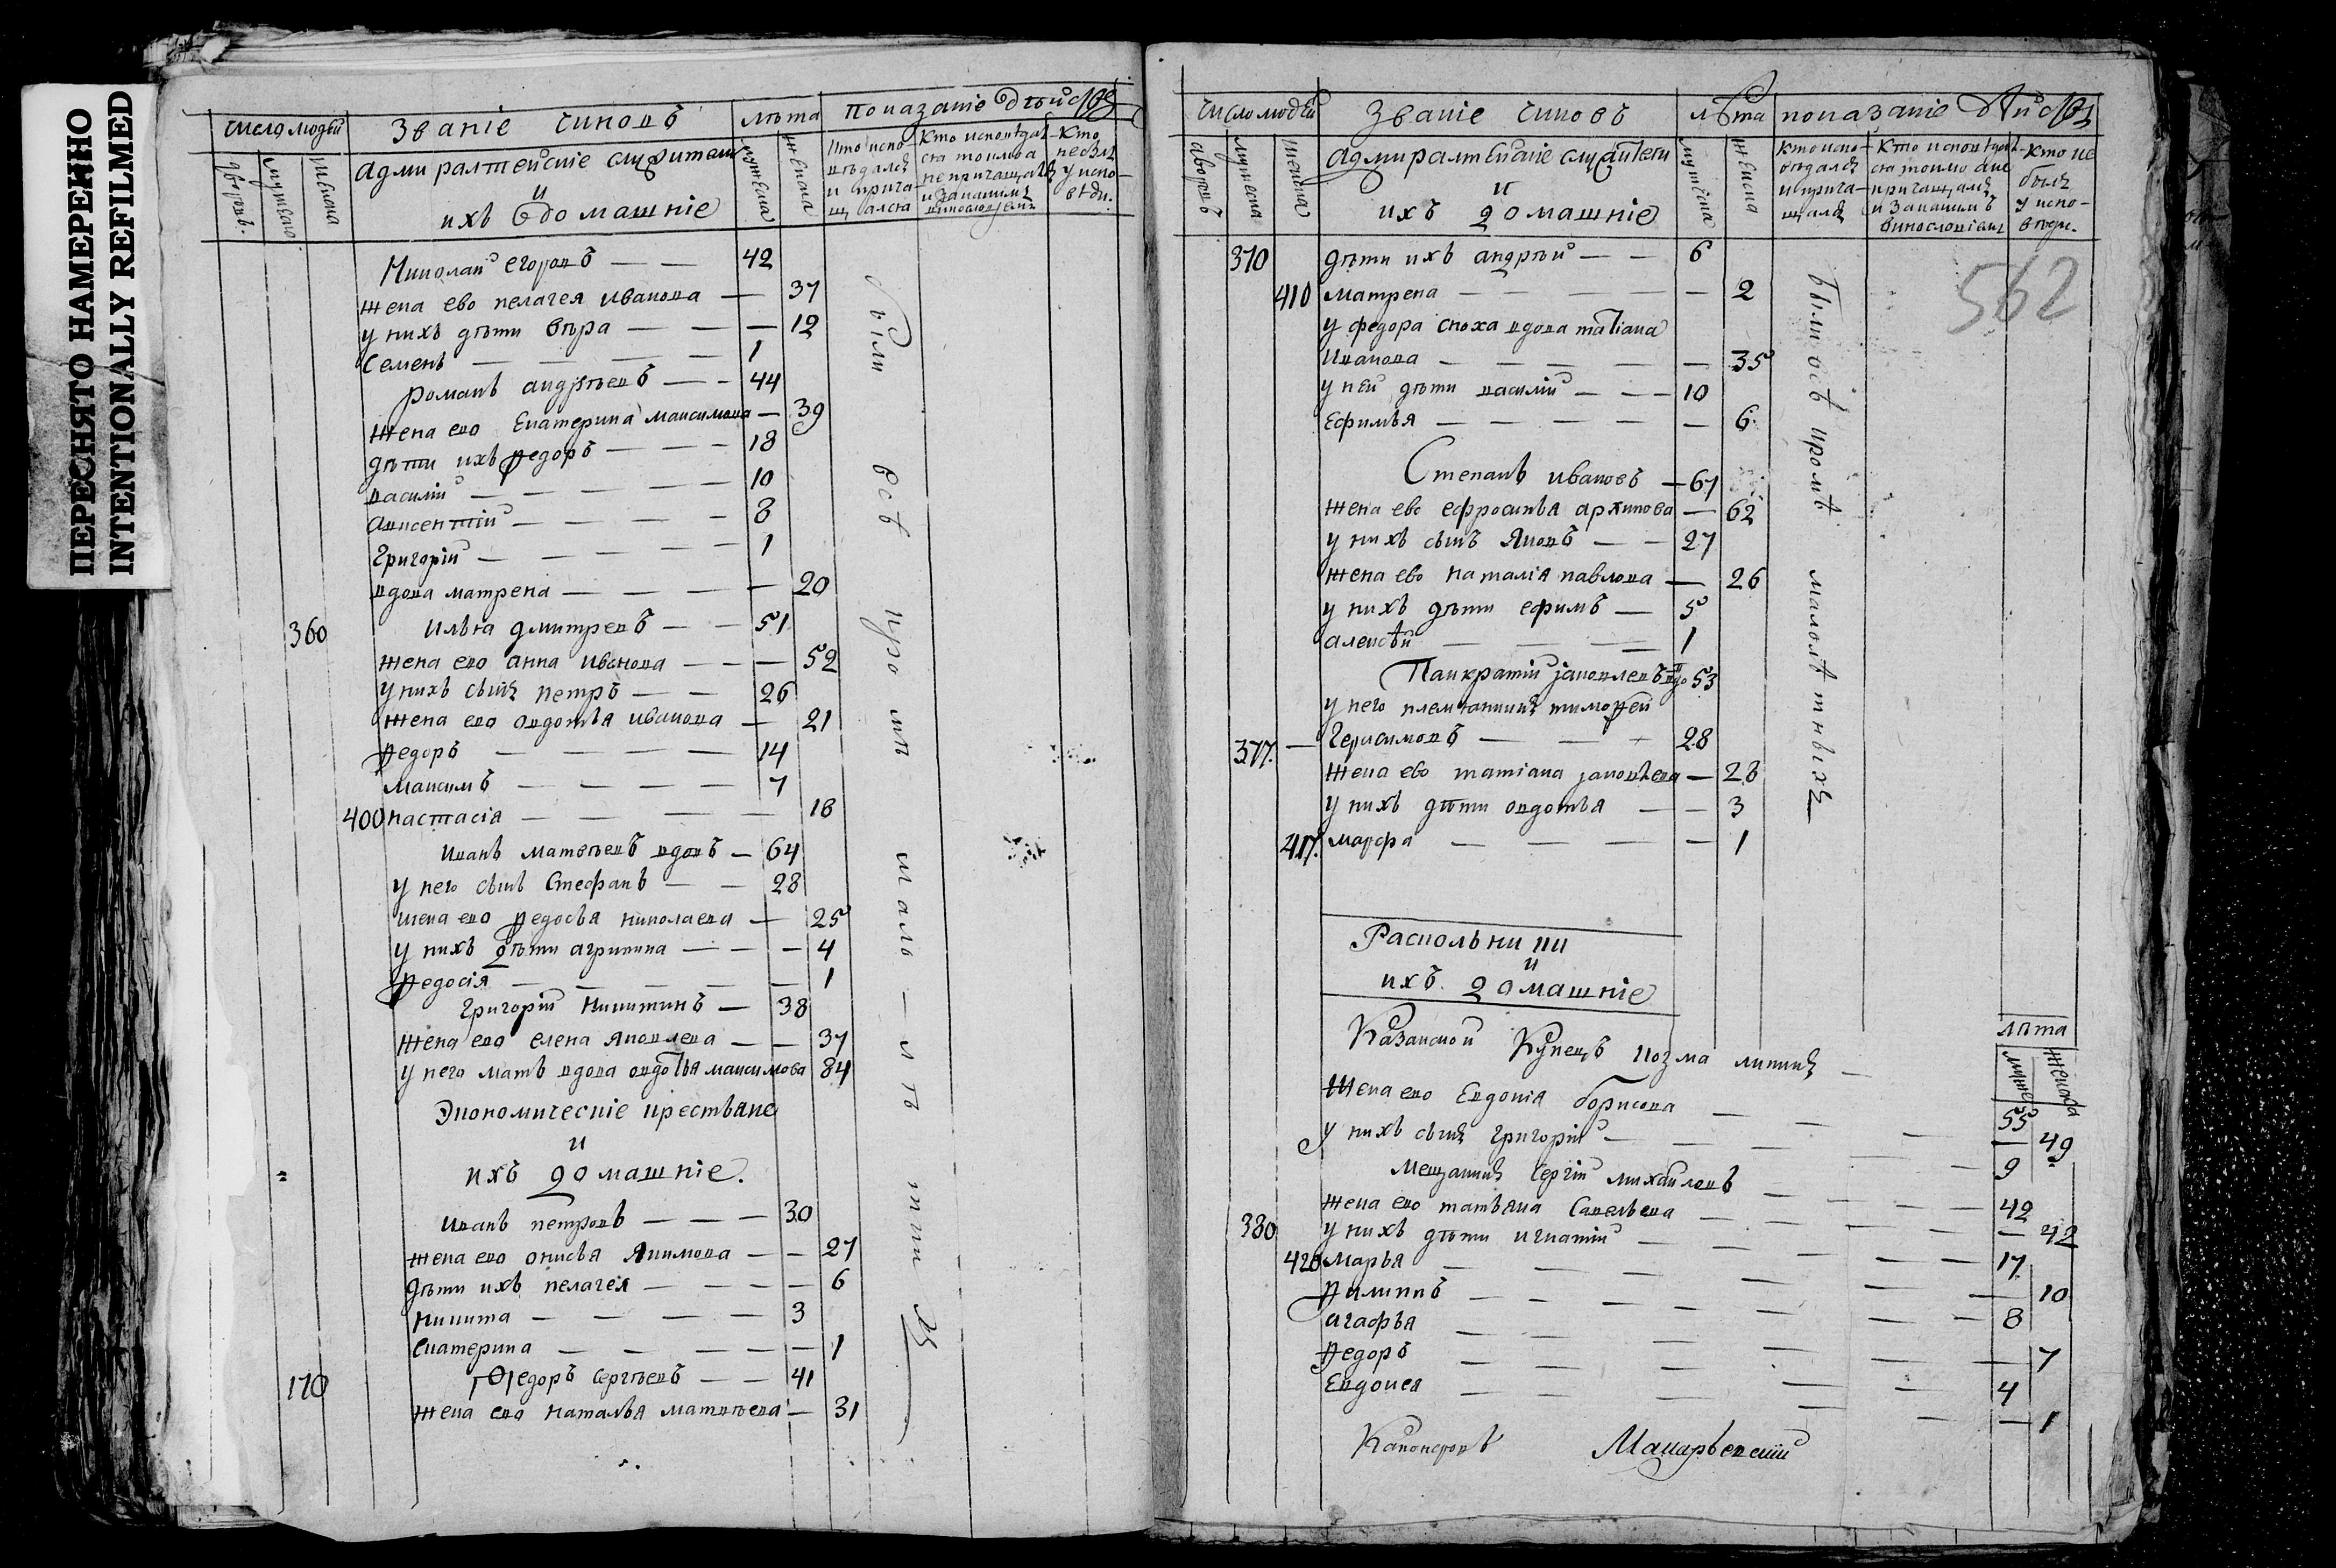 ПЕРЕСНЯТО НАМЕРЕННО
INTENTIONALLY REFILMED
число людей
званіе чиновъ
лѣта
показаніе дѣйства
дворовъ
мужеска
женска
адмиралтейскіе служители
и
ихъ домашніе
мужеска
женска
кто испо-
вѣдался
и прича-
щался
кто исповѣдал-
ся токмо а
не причащался
и за какимъ
винословіемъ
кто
не былъ
у испо-
вѣди.
Николай егоровъ — — 42
жена ево пелагея иванова — 37
у нихъ дѣти вѣра — — — 12
Семенъ — — — — 1
романъ андрѣевъ — — 44
жена ево Екатерина максимова — 39
дѣти ихъ федоръ — — — 18
василій — — — — — 10
авксентій — — — — — 8
Григорій — — — — — 1
вдова матрена — — — — 20
360 Илья дмитревъ — — 51
жена ево анна иванова — — — 52
у нихъ сынъ петръ — — 26
жена ево овдотья иванова — 21
федоръ — — — — 14
максимъ — — — — 7
400 настасія — — — — — 18
иванъ матвѣевъ вдовъ — 64
у него сынъ стефанъ — — 28
жена ево федосья николаева — 25
у нихъ дѣти агрипина — — — 4
федосія — — — — — 1
Григорій никитинъ — 38
жена ево елена яковлева — — 37
у него мать вдова овдотья максимова 84
Экономическіе крестьяне
и
ихъ домашніе.
иванъ петровъ — — — 30
жена ево онисья якимова — — 27
дѣти ихъ пелагея — — — — 6
никита — — — — 3
екатерина — — — — — 1
170 Ѳедоръ сергѣевъ — — 41
жена ево наталья матвѣева — 31
были всѣ кромѣ малолѣтныхъ
число людей
званіе чиновъ
лѣта
показаніе дѣйства
дворовъ
мужеска
женска
адмиралтейскіе служители
и
ихъ домашніе
мужеска
женска
кто испо-
вѣдался
и прича-
щался
кто исповѣдал-
ся токмо а не
причащался
и за какимъ
винословіемъ
кто не
былъ
у испо-
вѣди.
562
370 дѣти ихъ андрѣй — — 6
410 матрена — — — — — 2
у федора сноха вдова матіана
иванова — — — — — 35
у ней дѣти василій — — — 10
Ефимья — — — — — 6
Степанъ ивановъ — 67
жена ево ефросинья архипова — 62
у нихъ сынъ яковъ — — 27
жена ево наталія павлова — 26
у нихъ дѣти ефимъ — 5
алексѣй — — — 1
Панкратій яковлевъ вдо 53
у него племянникъ тимофей
377. — Герасимовъ — — — 28
жена ево татіана яковлева — 28
у нихъ дѣти овдотья — — 3
417. марфа — — — — 1
были всѣ кромѣ малолѣтныхъ
Раскольники
и
ихъ домашніе
лѣта
мужес
женска
Казанской Купецъ козма
55
жена ево Евдокія борисова — 49
у нихъ сынъ григорій — 9
мещанинъ сергій михайловъ — 42
жена ево татьяна савельева — 42
380 у нихъ дѣти игнатій — 17
420 марья — 10
филиппъ — 8
агафья — 7
федоръ — 4
Евдокея — 1
Макарьевскій